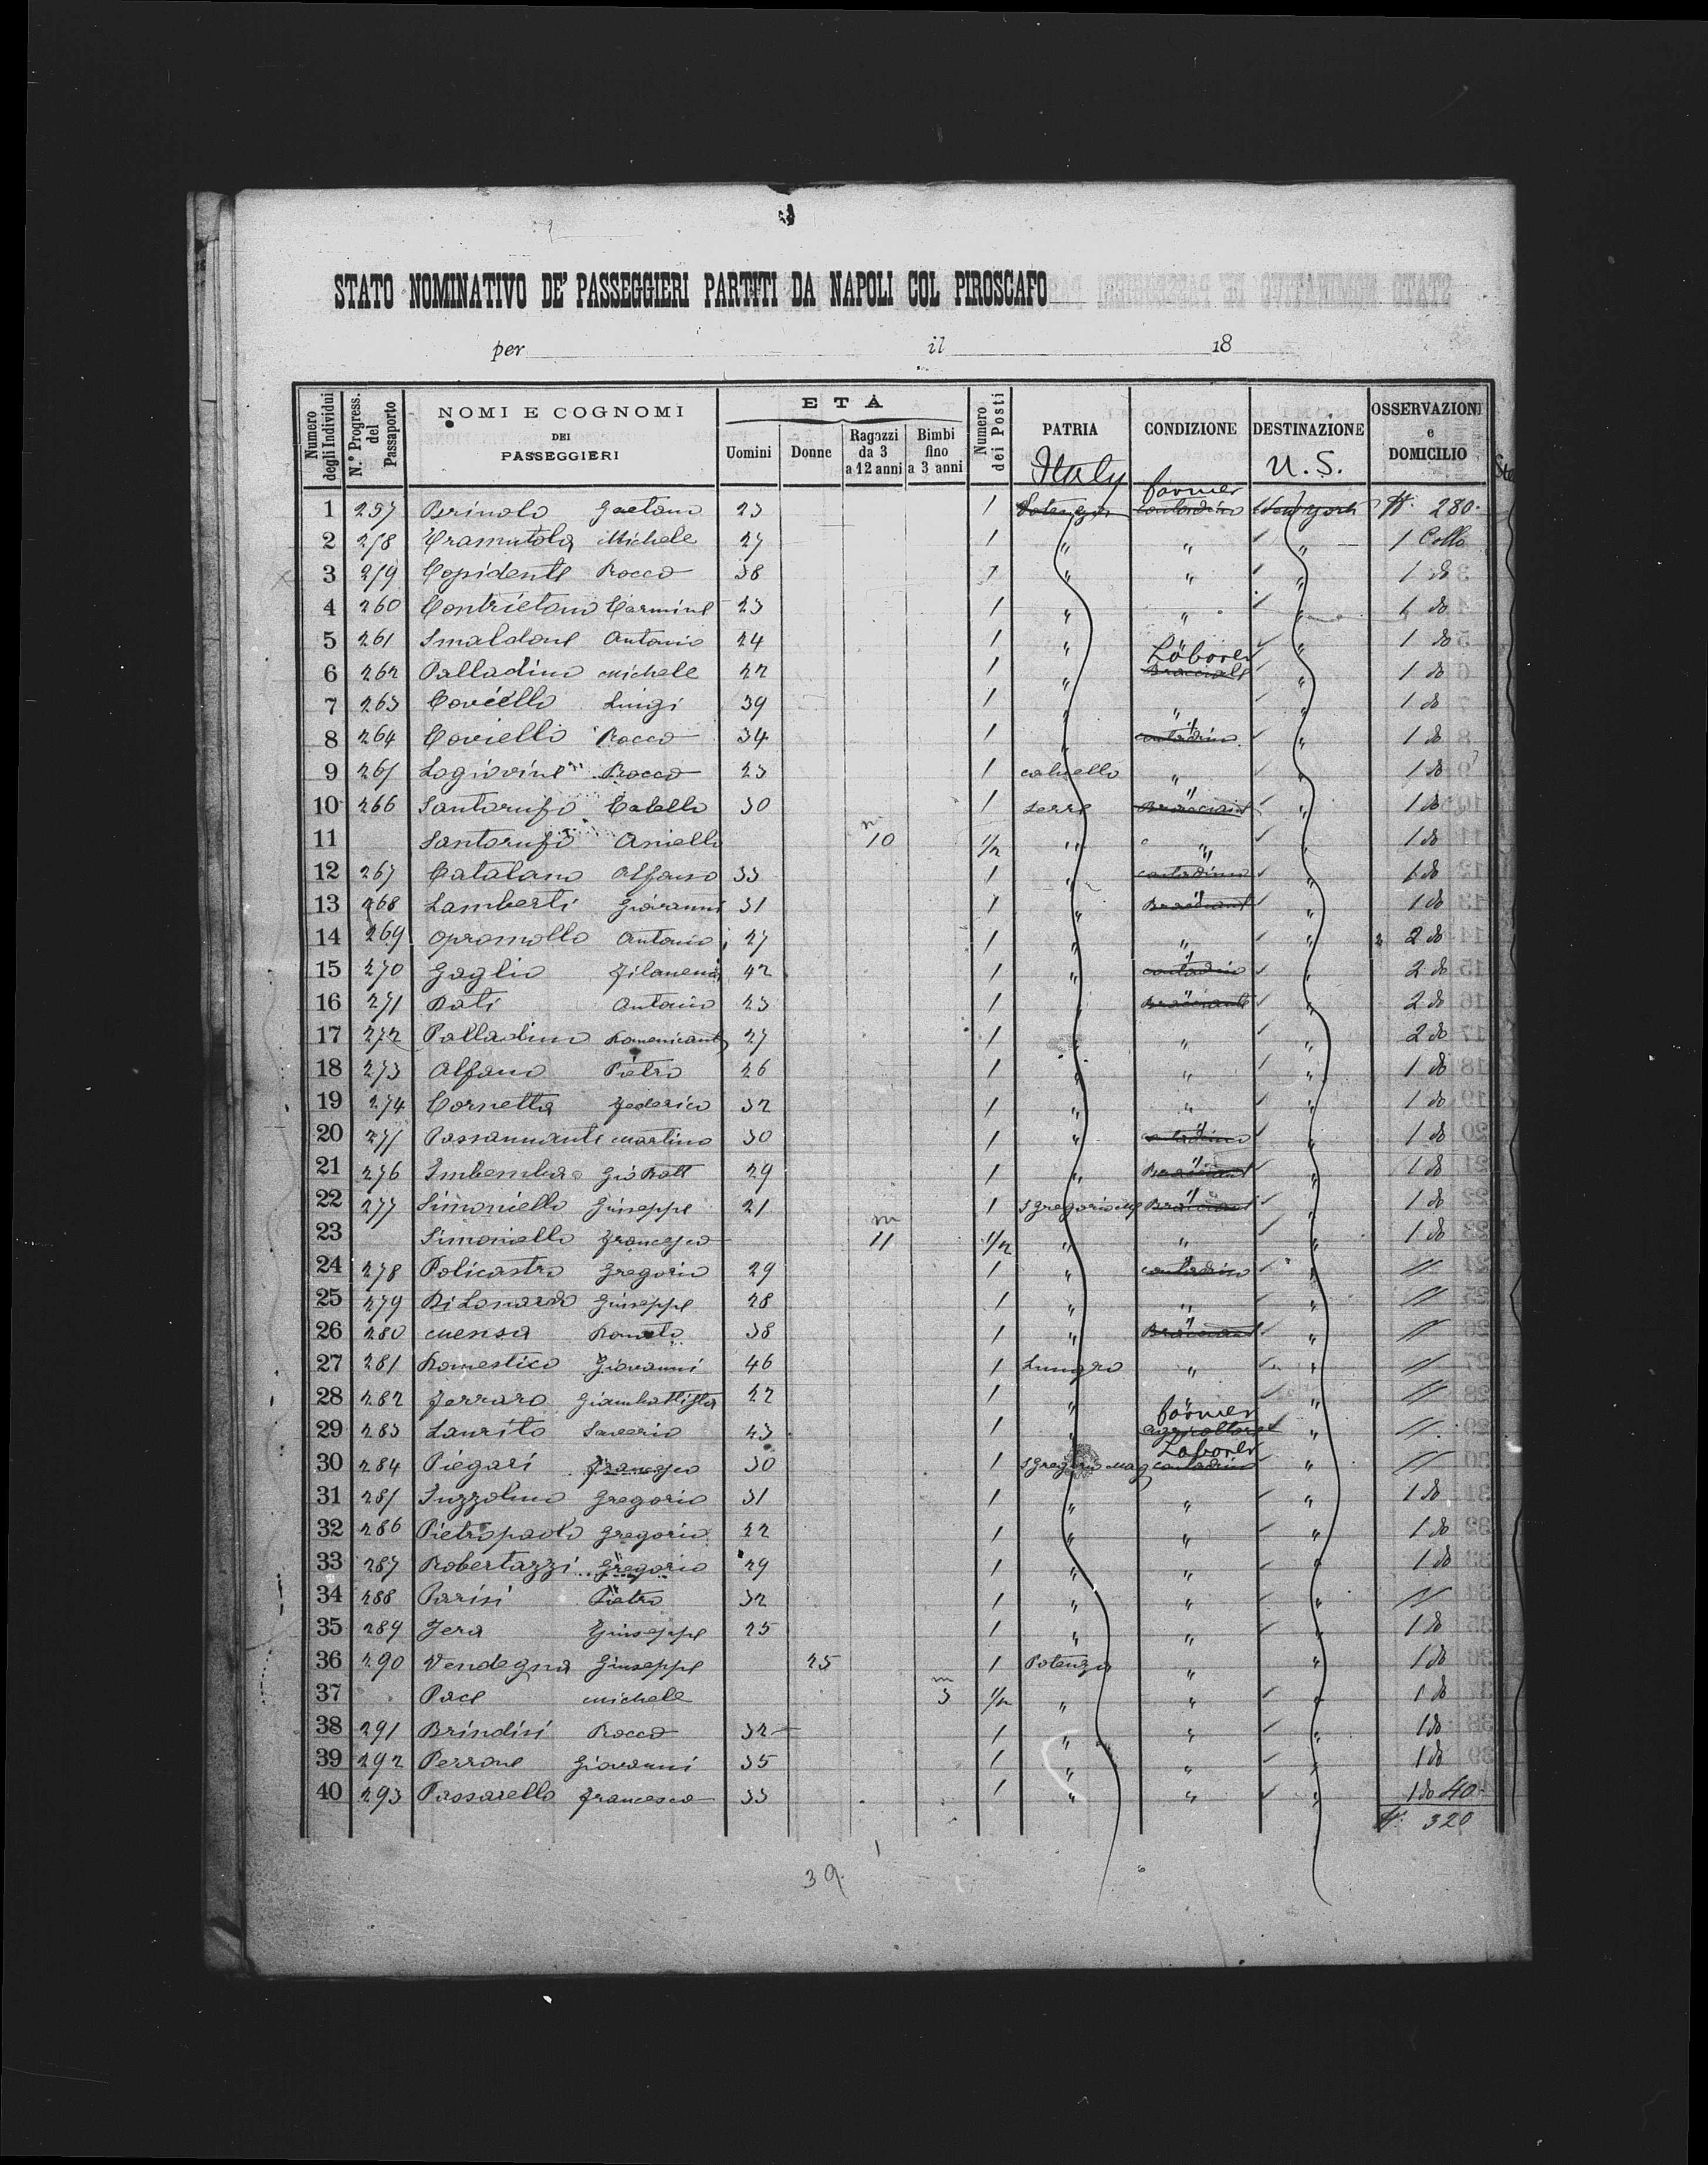 STATO NOMINATIVO DE' PASSEGGIERI PARTITI DA NAPOLI COL PIROSCAFO
per il 18
Numero degli Individui N.° Progress. del Passaporto NOMI E COGNOMI DEI PASSEGGIERI ETÀ Uomini Donne Ragazzi da 3 a 12 anni Bimbi fino a 3 anni Numero dei Posti PATRIA CONDIZIONE DESTINAZIONE OSSERVAZIONI e DOMICILIO
Italy U. S.
farmer
1 257 Brinolo Gaetano 23 1 Potenza contadino Newyork 280
2 258 Tramutola Michele 27 1 " " " 1 Collo
3 259 Capidente Rocco 38 1 " " " 1 do
4 260 Contrietano Carmine 23 1 " " " 1 do
5 261 Smaldone Antonio 24 1 " " 1 do
Laborer
6 262 Palladino Michele 22 1 " Bracciale " 1 do
7 263 Coviello Luigi 39 1 " " " 1 do
8 264 Coviello Rocco 34 1 " contadino " 1 do
9 265 Logiovine Rocco 23 1 calvello " " 1 do
10 266 Santorufo Catello 30 1 Serre Bracciante " 1 do
11 Santorufo Aniello m 10 1/2 " " " 1 do
12 267 Catalano Alfonso 33 1 " contadino " 1 do
13 268 Lamberti Giovanni 31 1 " Bracciante " 1 do
14 269 Opromollo Antonio 27 1 " " " 2 do
15 270 Gaglio Filomena 42 1 " contadino " 2 do
16 271 Dati Antonio 23 1 " Bracciante " 2 do
17 272 Palladino Domenicant 27 1 " " " 2 do
18 273 Alfano Pietro 26 1 " " " 1 do
19 274 Cornetta Federico 32 1 " " " 1 do
20 275 Passannante Martino 30 1 " contadino " 1 do
21 276 Imbemba Gio Batt 29 1 " Bracciant " 1 do
22 277 Simoniello Giuseppe 21 1 S Gregorio Mag Bracciant " 1 do
23 Simoniello Francesco m 11 1/2 " " " 1 do
24 278 Policastro Gregorio 29 1 " contadino " //
25 279 Di Lonardo Giuseppe 28 1 " " " //
26 280 Mensa Donato 38 1 " Bracciant " //
27 281 Domestico Giovanni 46 1 Lungro " " //
28 282 Ferraro Giambattista 22 1 " " //
farmer
29 283 Laurito Saverio 43 1 " agricoltore " //
Laborer
30 284 Piegari Francesco 30 1 S Gregorio Mag contadino " //
31 285 Iuzzolino Gregorio 31 1 " " " 1 do
32 286 Pietropaolo Gregorio 22 1 " " " 1 do
33 287 Robertazzi Gregorio 29 1 " " " 1 do
34 288 Parisi Pietro 32 1 " " " //
35 289 Fera Giuseppe 25 1 " " " 1 do
36 290 Vendegna Giuseppe 25 1 Potenza " " 1 do
37 Pace Michele m 3 1/2 " " " 1 do
38 291 Brindisi Rocco 32 1 " " " 1 do
39 292 Perrone Giovanni 35 1 " " " 1 do
40 293 Passarello Francesco 33 1 " " " 1 do 40
320
39